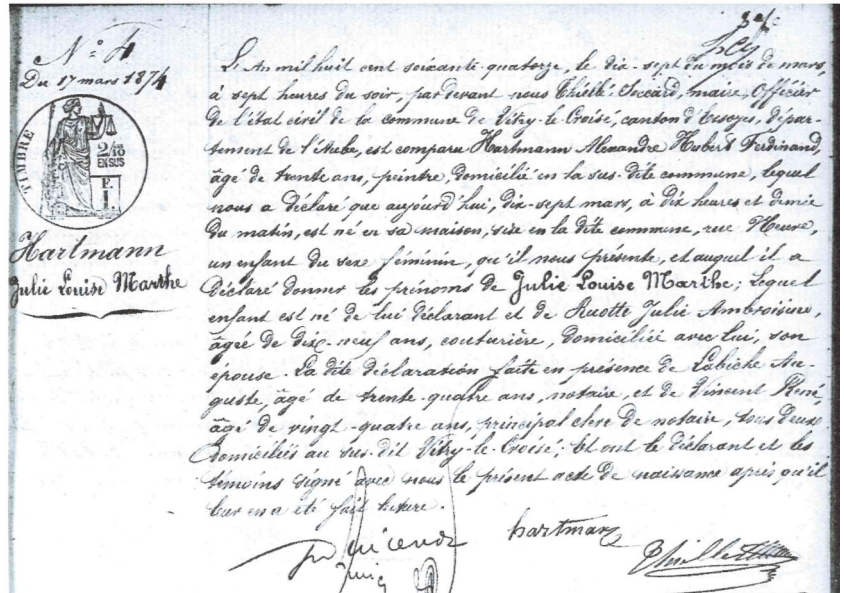 N° 4
Du 17 mars 1874
TIMBRE
2/10
EN SUS
F.
1.
Hartmann
Julie Louise Marthe
L'An mil huit cent soixante-quatorze, le dix-sept du mois de mars,
à sept heures du soir, par devant nous Maire, Officier
de l'état civil de la commune de Vitry-le-Croisé, canton d'Essoyes, dépar-
tement de l'Aube, est comparu Hartmann Alexandre Hubert Ferdinand,
âgé de trente ans, peintre, domicilié en la sus-dite commune, lequel
nous a déclaré que aujourd'hui, dix-sept mars, à dix heures et demie
du matin, est né en sa maison, sise en la dite commune, rue Neuve,
un enfant du sexe féminin, qu'il nous présente, et auquel il a
déclaré donner les prénoms de Julie Louise Marthe; Lequel
enfant est né de lui déclarant et de Ruotte Julie Ambroisine,
âgée de dix-neuf ans, couturière, domiciliée avec lui, son
épouse. La dite déclaration faite en présence de Labiche Au-
guste, âgé de trente-quatre ans, notaire, et de Vincent René,
âgé de vingt-quatre ans, principal clerc de notaire, tous deux
domiciliés au sus-dit Vitry-le-Croisé; Et ont le déclarant et les
témoins signé avec nous le présent acte de naissance après qu'il
leur en a été fait lecture.
hartmann